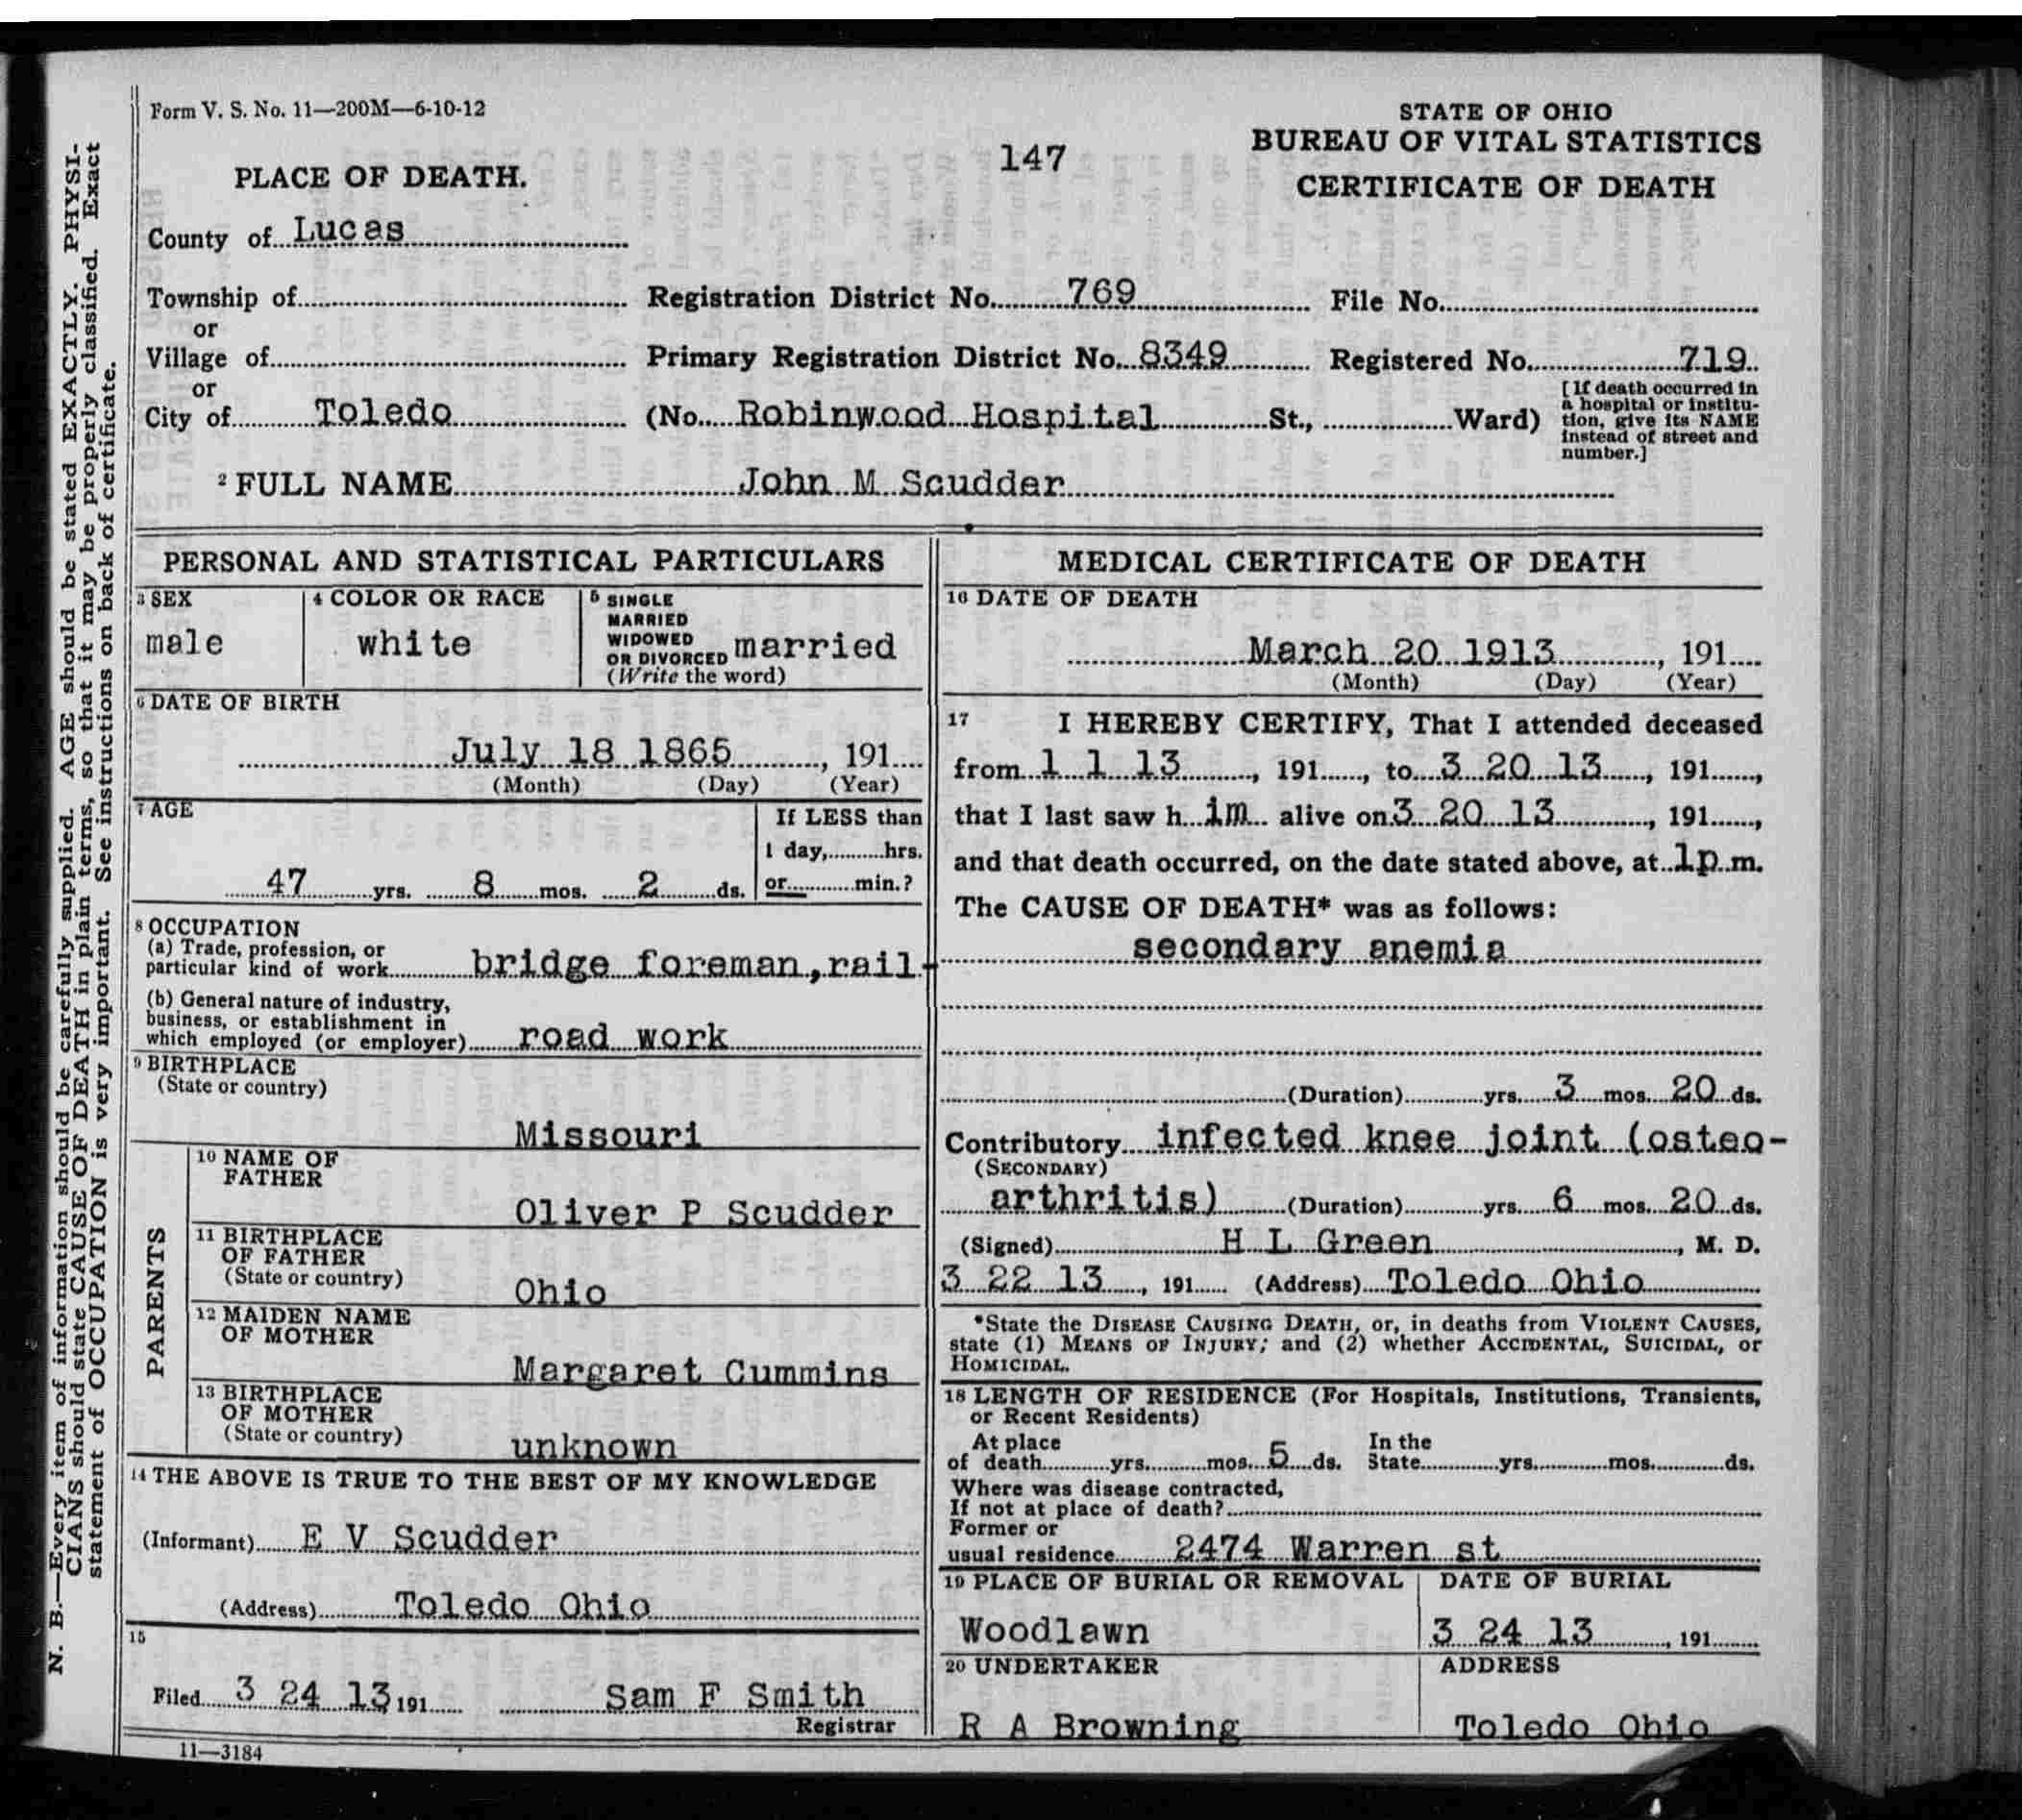 Form V. S. No. 11—200M—6-10-12
147
STATE OF OHIO
BUREAU OF VITAL STATISTICS
CERTIFICATE OF DEATH
PLACE OF DEATH.
County of Lucas
Township of Registration District No. 769 File No.
or
Village of Primary Registration District No. 8349 Registered No. 719
or
City of Toledo (No. Robinwood Hospital St., Ward)
[If death occurred in
a hospital or institu-
tion, give its NAME
instead of street and
number.]
2 FULL NAME John M Scudder
PERSONAL AND STATISTICAL PARTICULARS
3 SEX
male
4 COLOR OR RACE
white
5 SINGLE
MARRIED
WIDOWED
OR DIVORCED
(Write the word)
married
6 DATE OF BIRTH
July 18 1865, 191
(Month) (Day) (Year)
7 AGE
47 yrs. 8 mos. 2 ds.
If LESS than
1 day, hrs.
or min.?
8 OCCUPATION
(a) Trade, profession, or
particular kind of work bridge foreman,rail-
(b) General nature of industry,
business, or establishment in
which employed (or employer) road work
9 BIRTHPLACE
(State or country)
Missouri
PARENTS
10 NAME OF
FATHER
Oliver P Scudder
11 BIRTHPLACE
OF FATHER
(State or country)
Ohio
12 MAIDEN NAME
OF MOTHER
Margaret Cummins
13 BIRTHPLACE
OF MOTHER
(State or country)
unknown
14 THE ABOVE IS TRUE TO THE BEST OF MY KNOWLEDGE
(Informant) E V Scudder
(Address) Toledo Ohio
15
Filed 3 24 13 191 Sam F Smith
Registrar
11—3184
MEDICAL CERTIFICATE OF DEATH
16 DATE OF DEATH
March 20 1913, 191
(Month) (Day) (Year)
17 I HEREBY CERTIFY, That I attended deceased
from 1 1 13, 191, to 3 20 13, 191,
that I last saw h im alive on 3 20 13, 191,
and that death occurred, on the date stated above, at 1p m.
The CAUSE OF DEATH* was as follows:
secondary anemia
(Duration) yrs. 3 mos. 20 ds.
Contributory infected knee joint (osteo-
(SECONDARY)
arthritis) (Duration) yrs. 6 mos. 20 ds.
(Signed) H L Green, M. D.
3 22 13, 191 (Address) Toledo Ohio
*State the DISEASE CAUSING DEATH, or, in deaths from VIOLENT CAUSES,
state (1) MEANS OF INJURY; and (2) whether ACCIDENTAL, SUICIDAL, or
HOMICIDAL.
18 LENGTH OF RESIDENCE (For Hospitals, Institutions, Transients,
or Recent Residents)
At place In the
of death yrs. mos. 5 ds. State yrs. mos. ds.
Where was disease contracted,
If not at place of death?
Former or
usual residence 2474 Warren st
19 PLACE OF BURIAL OR REMOVAL
Woodlawn
DATE OF BURIAL
3 24 13, 191
20 UNDERTAKER
R A Browning
ADDRESS
Toledo Ohio
N. B.—Every item of information should be carefully supplied. AGE should be stated EXACTLY. PHYSI-
CIANS should state CAUSE OF DEATH in plain terms, so that it may be properly classified. Exact
statement of OCCUPATION is very important. See instructions on back of certificate.